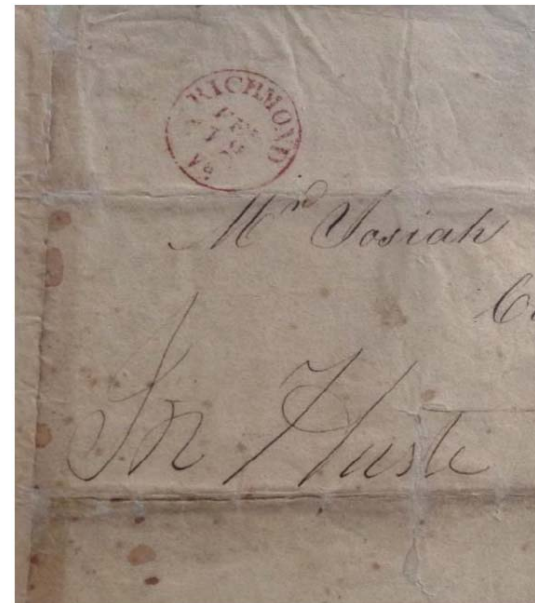 RICHMOND
FEB
19
Va
Mr Josiah
In Haste